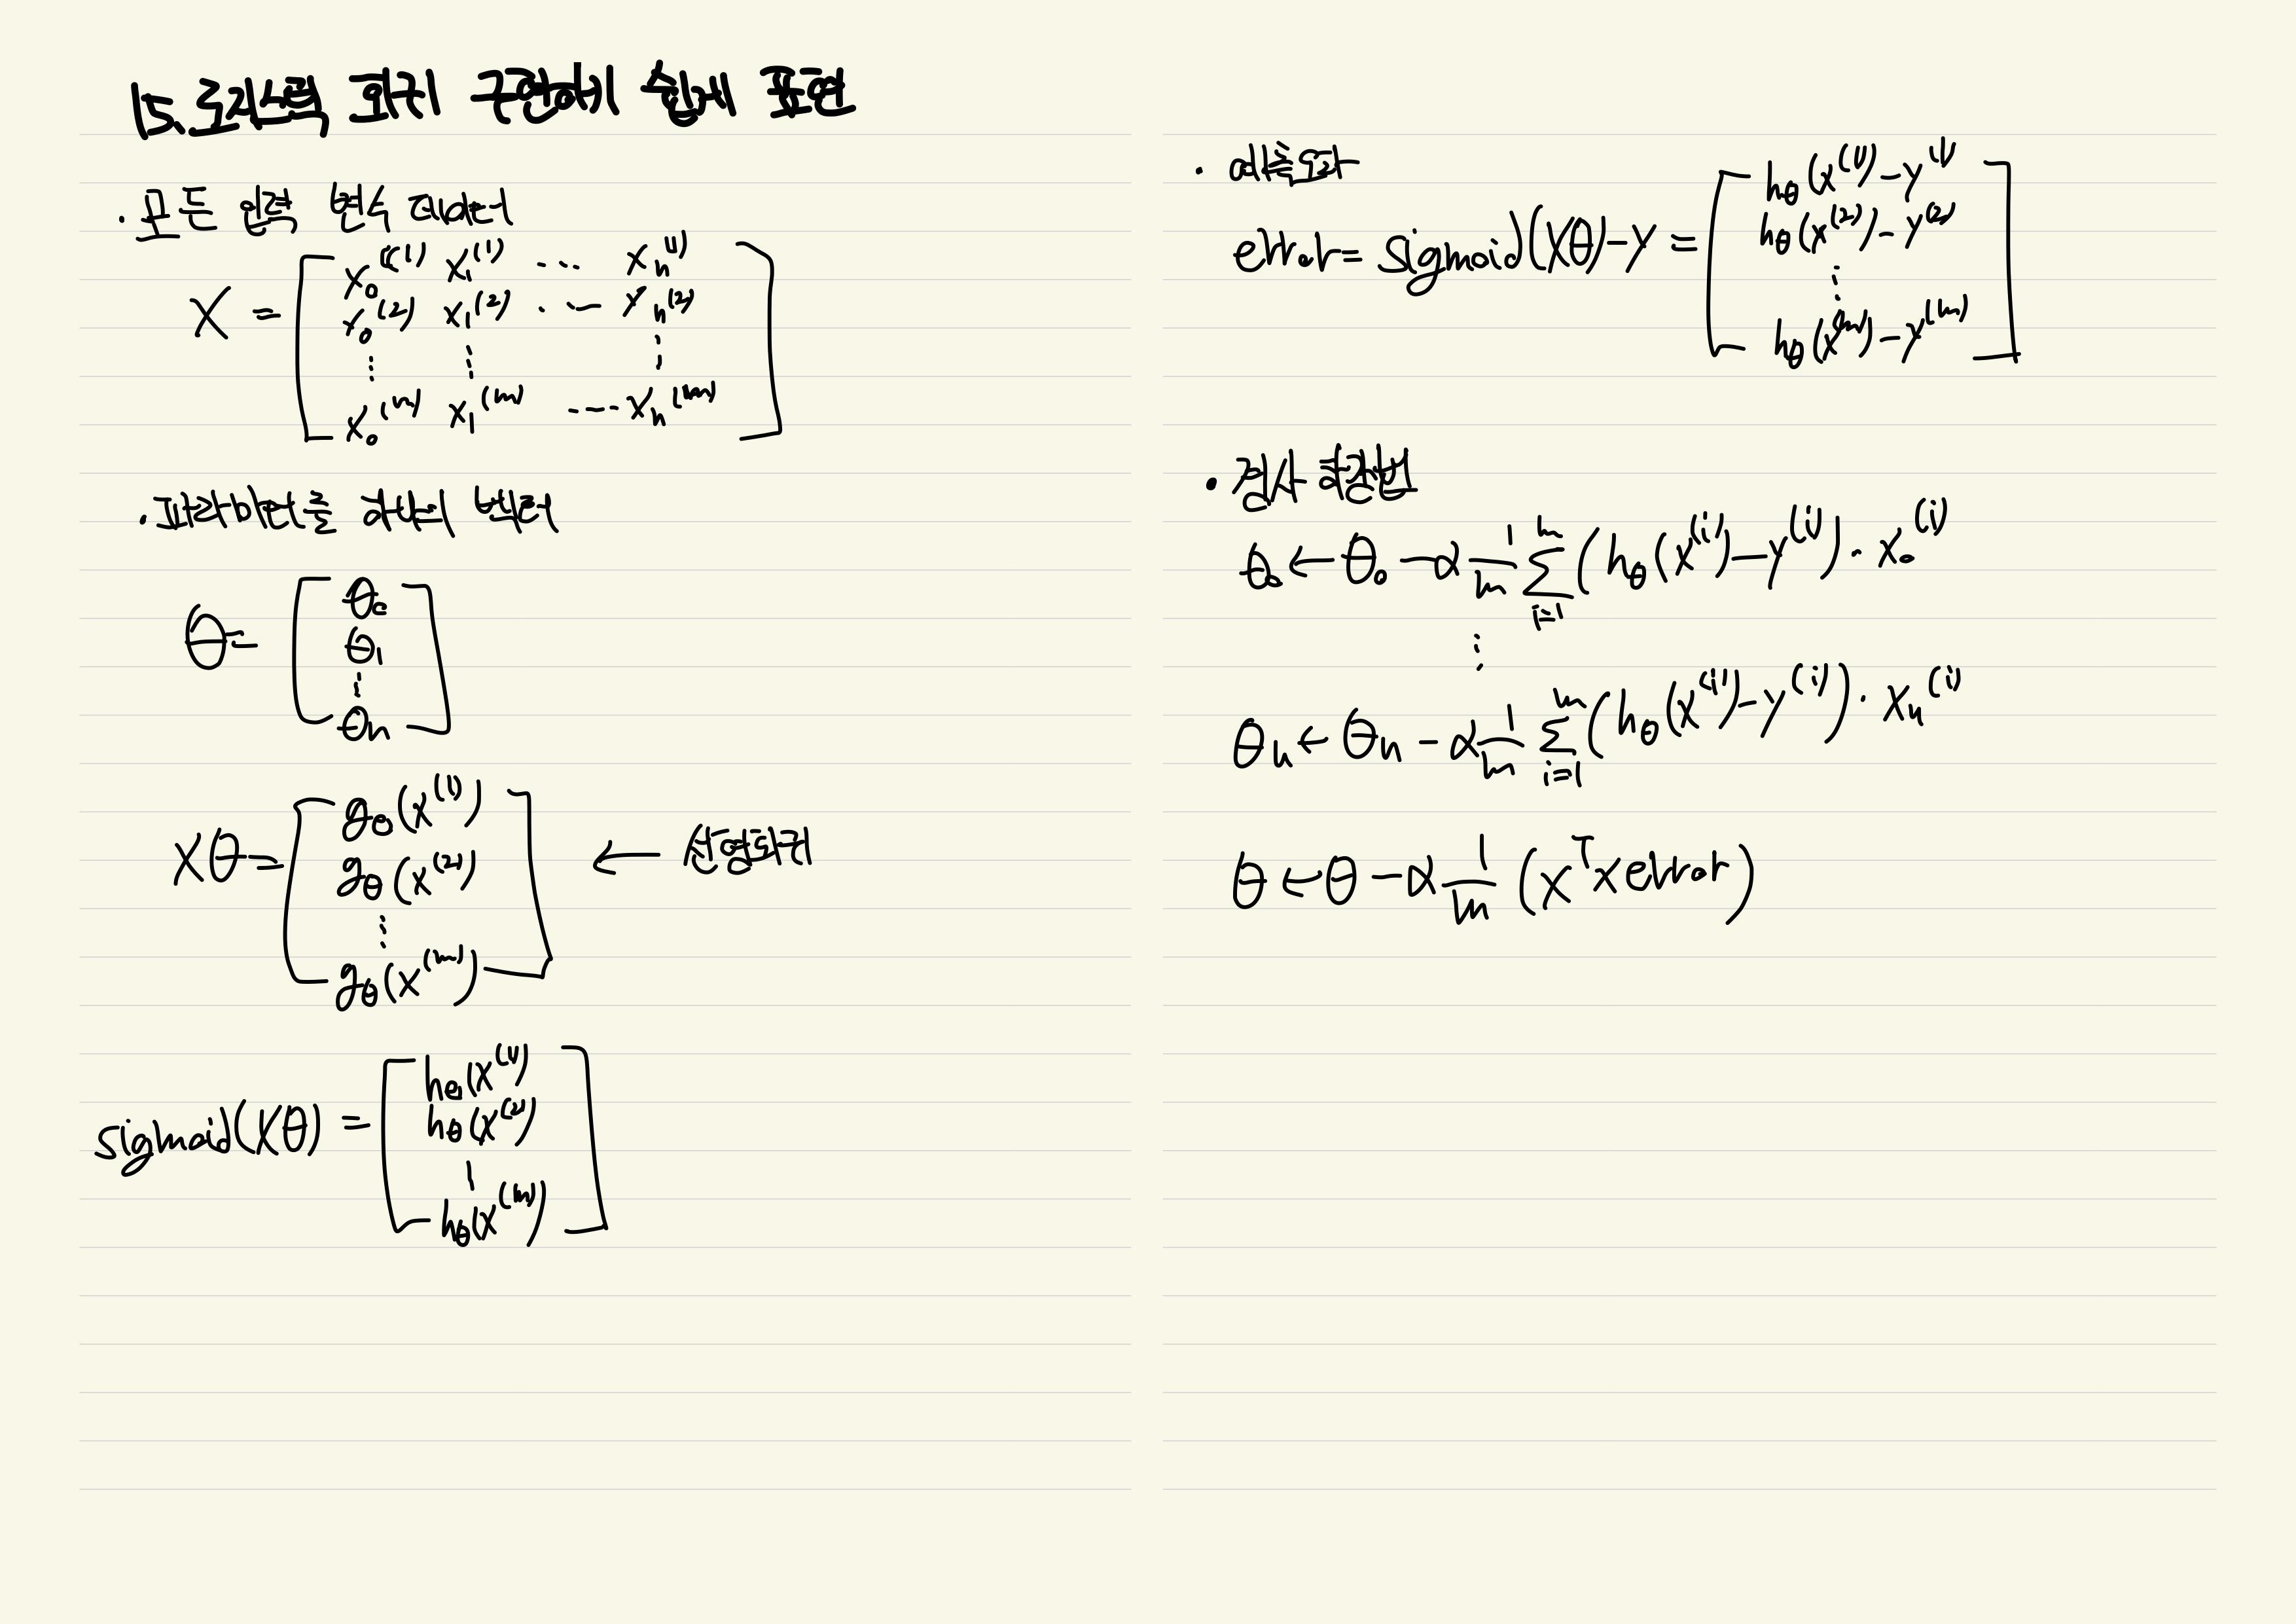 15. 로지스틱 회귀 구현하기 쉽게 표현
· 모든 입력 변수 데이터
X = [ x₀⁽¹⁾ x₁⁽¹⁾ ⋯ xₙ⁽¹⁾
x₀⁽²⁾ x₁⁽²⁾ ⋯ xₙ⁽²⁾
⋮ ⋮ ⋮
x₀⁽ᵐ⁾ x₁⁽ᵐ⁾ ⋯ xₙ⁽ᵐ⁾ ]
· 파라미터를 하나의 벡터
θ = [ θ₀
θ₁
⋮
θₙ ]
Xθ = [ g_θ(x⁽¹⁾)
g_θ(x⁽²⁾)
⋮
g_θ(x⁽ᵐ⁾) ] ← 선형회귀
sigmoid(Xθ) = [ h_θ(x⁽¹⁾)
h_θ(x⁽²⁾)
⋮
h_θ(x⁽ᵐ⁾) ]
· 예측오차
error = sigmoid(Xθ) − y = [ h_θ(x⁽¹⁾) − y⁽¹⁾
h_θ(x⁽²⁾) − y⁽²⁾
⋮
h_θ(x⁽ᵐ⁾) − y⁽ᵐ⁾ ]
· 경사 하강법
θ₀ ← θ₀ − α 1/m Σᵢ₌₁ᵐ (h_θ(x⁽ⁱ⁾) − y⁽ⁱ⁾) · x₀⁽ⁱ⁾
⋮
θₙ ← θₙ − α 1/m Σᵢ₌₁ᵐ (h_θ(x⁽ⁱ⁾) − y⁽ⁱ⁾) · xₙ⁽ⁱ⁾
θ ← θ − α 1/m (Xᵀ × error)